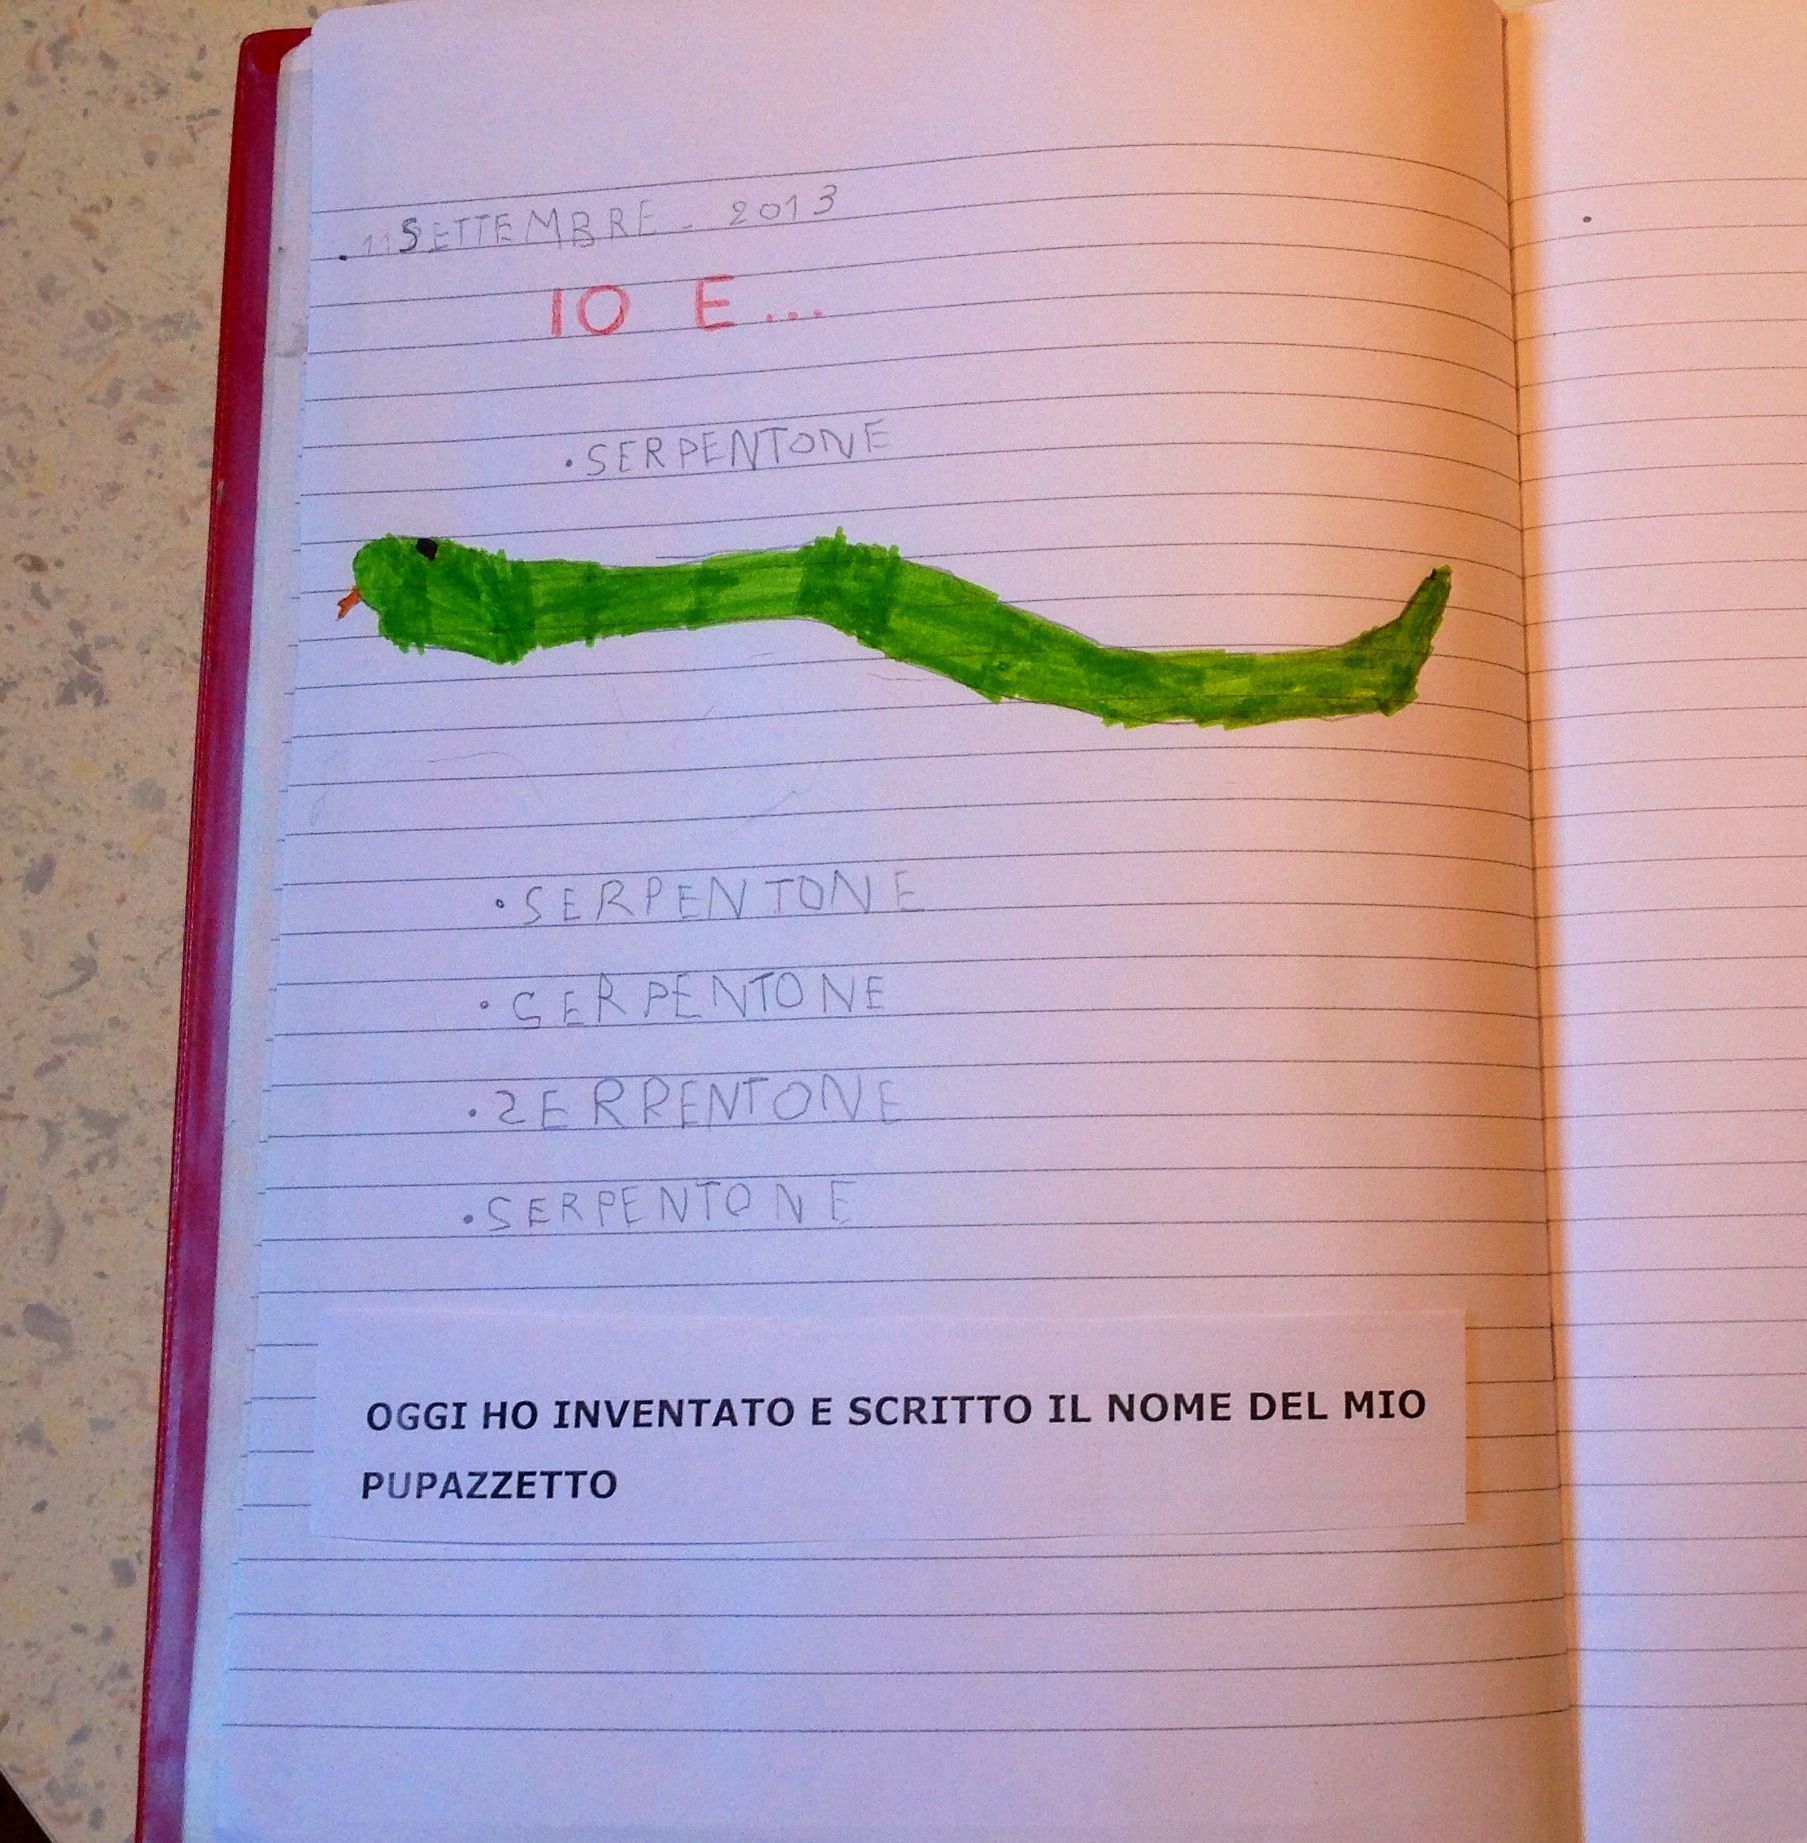 11 SETTEMBRE - 2013
IO E...
•SERPENTONE
•SERPENTONE
•SERPENTONE
•2ERPENTONE
•SERPENTONE
OGGI HO INVENTATO E SCRITTO IL NOME DEL MIO
PUPAZZETTO